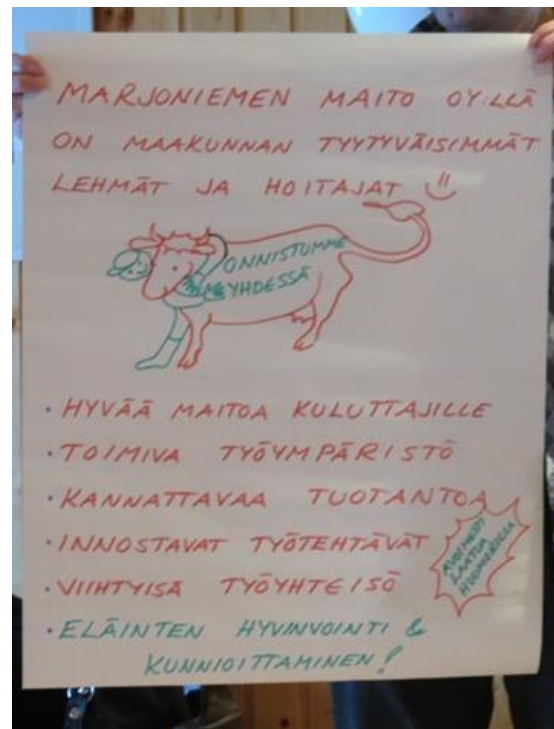 MARJONIEMEN MAITO OY:LLÄ
ON MAAKUNNAN TYYTYVÄISIMMÄT
LEHMÄT JA HOITAJAT
ONNISTUMME
YHDESSÄ
• HYVÄÄ MAITOA KULUTTAJILLE
• TOIMIVA TYÖYMPÄRISTÖ
• KANNATTAVAA TUOTANTOA
• INNOSTAVAT TYÖTEHTÄVÄT
• VIIHTYISÄ TYÖYHTEISÖ
LAATUA
HUUMORILLA
• ELÄINTEN HYVINVOINTI &
KUNNIOITTAMINEN!